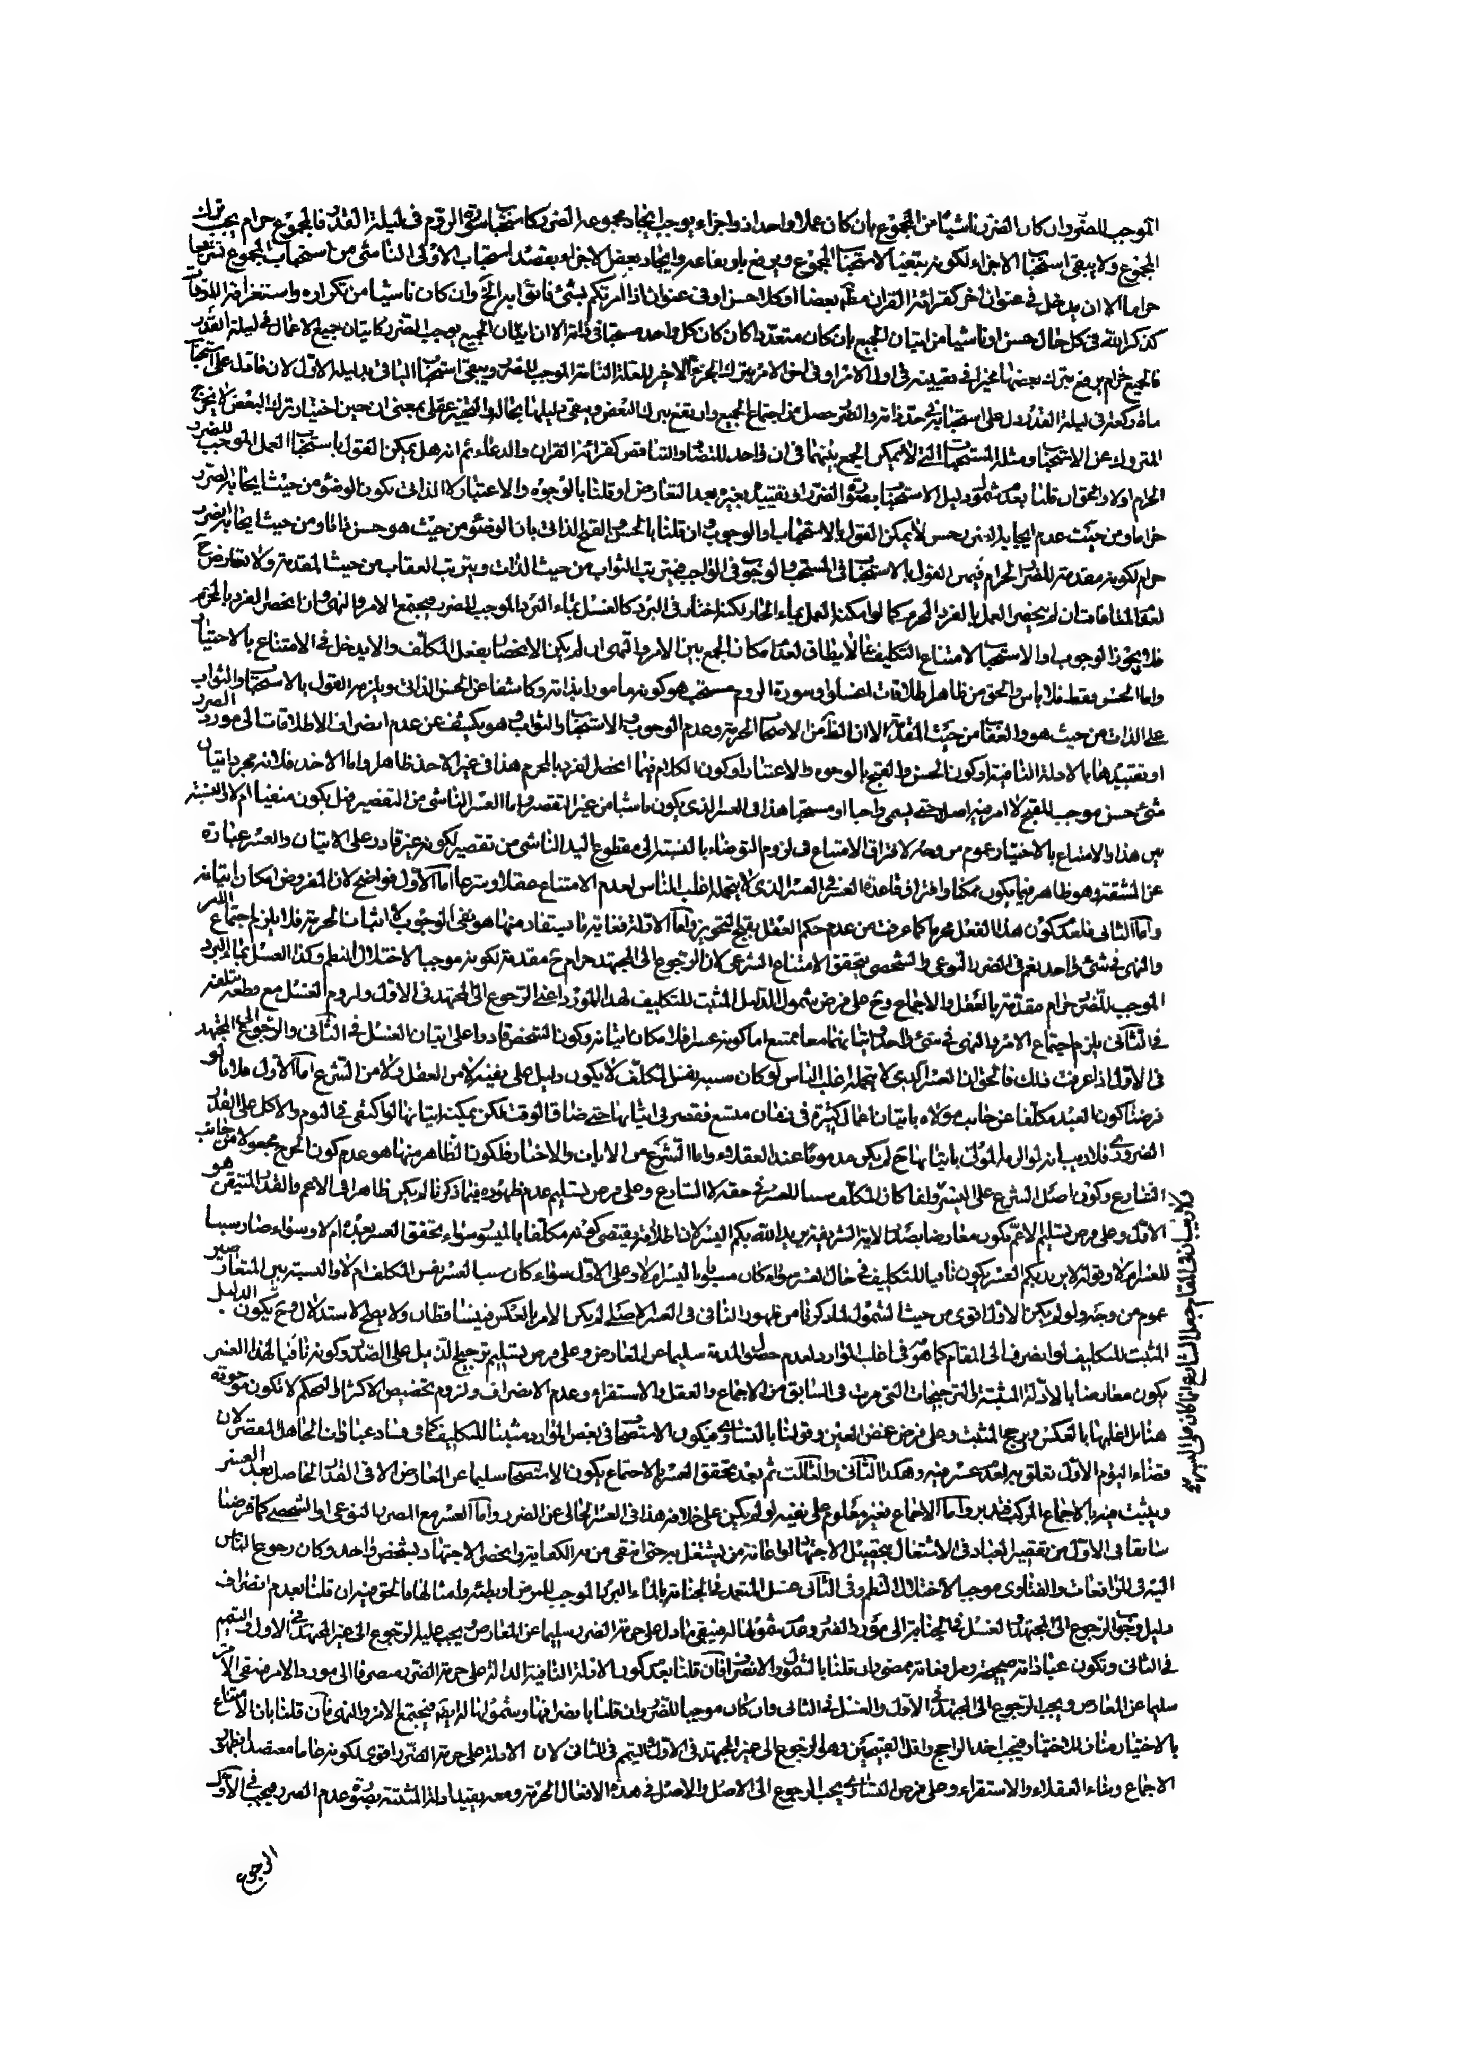 الموجب للضرر وان كان الضرر ناشيا من المجموع بان كان عملا واحدا ذو اجزاء يوجب ايجاد مجموعه الضرر كاستحباب سورة الروم في ليلة القدر فالمجموع حرام يجب ترك
المجموع ولا يبقى استحباب الاجزاء لكونه بتبعية استحباب المجموع ويرتفع بارتفاعه وايجاد بعض الاجزاء بقصد استحباب الاولى الناشئ من استحباب المجموع تشريعا
حراما الا ان يدخل في عنوان اخر كقرائة القران بعضا او كلا حسن او في عنوان اذا امرتكم بشئ فاتوا به الخ وان كان ناشيا من تكراره واستغراقه للاوقات
كذكر الله في كل حال حسن او ناشيا من اتيان الجميع بان كان متعددا كان كل واحد مستحبا في ذاته الا ان اتيان الجميع يوجب الضرر كاتيان جميع الاعمال في ليلة القدر
فالجميع حرام يرتفع بترك بعضها مخيرا في تعيينه في اول الامر او في اخر الامر بترك الجزء الاخير للعلة التامة الموجب للضرر ويبقى استحباب الباقي بدليله الاول لان ما دل على استحباب
ماة ركعة في ليلة القدر دل على استحبابه في حد ذاته والضرر حصل من اجتماع الجميع وان يقع بترك البعض ويبقى دليلها بحاله والتخيير عقلي بمعنى ان حين اختيار ترك البعض لا يخرج
المتروك عن الاستحباب ومثله المستحبات التي لا يمكن الجمع بينهما في ان واحد للتضاد والتناقض كقرائة القران والدعاء ثم انه هل يمكن القول باستحباب العمل الموجب للضرر
المحرم اولا والحق ان قلنا بعدم شمول دليل الاستحباب بصورة الضرر او تقييده بغيره بعد التعارض او قلنا بالوجوه والاعتبار لا الذاتي بكون الوضوء من حيث ايجابه الضرر
حراما ومن حيث عدم ايجابه الضرر حسن لا يمكن القول بالاستحباب او الوجوب وان قلنا بالحسن والقبح الذاتي بان الوضوء من حيث هو حسن ذاتا ومن حيث ايجابه الضرر
حرام لكونه مقدمة للضرر الحرام فيمكن القول بالاستحباب في المستحب والوجوب في الواجب فيترتب الثواب من حيث الذات ويترتب العقاب من حيث المقدمة ولا تعارض ح
العمل بالفرد المحرم كما لو امكنه العمل بماء الحار لكنه اختار في البرد كالغسل بماء البرد الموجب للضرر فيجتمع الامر والنهي وان انحصر الفرد بالمحرم
فلا يجوز الوجوب او الاستحباب لامتناع التكليف بما لا يطاق لعدم امكان الجمع بين الامر والنهي ان لم يكن الانحصار بفعل المكلف والا يدخل في الامتناع بالاختيار
واما الحسن فقط فلا باس والحق من ظاهر اطلاقات اغسلوا وسورة الروم مستحب هو كونهما مورا بذاته وكاشفا عن الحسن الذاتي ويلزمه القول بالاستحباب والثواب
على الذات من حيث هو والعقاب من حيث المقدمة الا ان الظاهر من الاصحاب الحرمة وعدم الوجوب والاستحباب والثواب وهو يكشف عن عدم انصراف الاطلاقات الى مورد الضرر
او تقييدها بالادلة النافية او كون الحسن والقبح بالوجوه والاعتبار او كون الكلام فيما انحصر الفرد بالمحرم هذا في غير الاخذ ظاهر واما الاخذ فلانه مجرد اتيان
شئ حسن موجب للقبح لا امر فيه اصلا حتى يسمى واجبا او مستحبا هذا في العسر الذي يكون ناشيا من غير التقصير واما العسر الناشي من التقصير فهل يكون منفيا ام لا والنسبة
بين هذا والامتناع بالاختيار عموم من وجه لافتراق الامتناع في لزوم التوضاء بالنسبة الى مقطوع اليد الناشي من تقصير لكونه غير قادر على الاتيان والعسر عبارة
عن المشقة وهو ظاهر فيما يكون ممكنا وافتراق قاعدة العسر في العسر الذي لا يتحمله اغلب الناس لعدم الامتناع عقلا وشرعا اما الاول فواضح لان المفروض امكان اتيانه
واما الثاني فلعدم كون هذا الفعل محرما كما عرفت من عدم حكم العقل بقبح التجويز واما الادلة فغاية ما يستفاد منها هو نفي الوجوب لا اثبات الحرمة فلا يلزم اجتماع الامر
والنهي في شئ واحد نعم في الضرر النوعي والشخصي يتحقق الامتناع الشرعي لان الرجوع الى المجتهد حرام ح مقدمة لكونه موجبا لاختلال النظم وكذا الغسل بماء البرد
الموجب للضرر حرام مقدمة بالعقل والاجماع وح على فرض شمول الدليل المثبت للتكليف لهذا المورد اعني الرجوع الى المجتهد في الاول ولزوم الغسل مع قطعه بتلفه
في الثاني يلزم اجتماع الامر والنهي في شئ واحد واتيانهما معا ممتنع اما كونه عسرا فلامكان اتيانه وكون الشخص قادرا على اتيان الغسل في الثاني والرجوع الى المجتهد
في الاول اذا عرفت ذلك فالحق ان العسر الذي لا يتحمله اغلب الناس لو كان سببه نفس المكلف لا يكون دليل على نفيه لا من العقل ولا من الشرع اما الاول فلانا لو
فرضنا كون العبد مكلفا عن جانب مولاه باتيان اعمال كثيرة في زمان متسع فقصر في اتيانها حتى ضاق الوقت لكن يمكنه اتيانها لو اكتفى في النوم والاكل على القدر
الضروري فلا ريب انه لو الزمه المولى باتيانها ح لم يكن مذموما عند العقلاء واما الشرع من الايات والاخبار فلكون الظاهر منها هو عدم كون الحرج مجعولا من جانب
الشارع وكون اصل الشرع على اليسر وانما كان المكلف سببا للعسر في حقه لا الشارع وعلى فرض تسليم عدم ظهوره فيما ذكرنا لم يكن ظاهرا في الاعم والقدر المتيقن هو
الاول وعلى فرض تسليم الاعم يكون معارضا بصدر الاية الشريفة يريد الله بكم اليسر لان اطلاقه يقتضي كونه مكلفا بالميسور سواء تحقق العسر بعده ام لا وسواء صار سببا
للعسر ام لا وقوله لا يريد بكم العسر يكون نافيا للتكليف في حال العسر سواء كان مسبوقا باليسر ام لا وعلى الاول سواء كان سبب العسر نفس المكلف ام لا والنسبة بين المتعارضين
عموم من وجه ولو لم يكن الاول اقوى من حيث الشمول لما ذكرنا من ظهور الثاني في العسر الاصلي لم يكن الامر بالعكس فيتساقطان ولا يصح الاستدلال وح يكون الدليل
المثبت للتكليف لو انصرف الى المقام كما هو في اغلب الموارد لعدم حصول المدة سليما عن المعارض وعلى فرض تسليم ترجيح الذيل على الصدر وكونه نافيا لهذا العسر
يكون معارضا بالادلة المثبتة والترجيحات التي مرت في السابق من الاجماع والعقل والاستقراء وعدم الانصراف ولزوم تخصيص الاكثر والتحكم لا تكون موجودة
هنا بل اغلبها بالعكس ويرجح المثبت وعلى فرض غض العين وقولنا بالتساوي فيكون الاستصحاب في بعض الموارد مثبتا للتكليف كما في فساد عبادات الجاهل المقصر لان
قضاء اليوم الاول تعلق به لعدم عسر فيه وهكذا الثاني والثالث ثم بعد تحقق العسر بالاجتماع يكون الاستصحاب سليما عن المعارض الا في القدر الحاصل بعد العسر
ويثبت فيه بالاجماع المركب فتدبر واما الاجماع فغير معلوم على نفيه لو لم يكن على خلافه هذا في العسر الخالي عن الضرر واما العسر مع الضرر النوعي او الشخصي كما فرضنا
سابقا في الاول من تقصير العباد في الاشتغال بتحصيل الاجتهاد او اعانة من يشتغل به حتى انتفى من به الكفاية وانحصر الاجتهاد بشخص واحد وكان رجوع الناس
اليه في المرافعات والفتاوى موجبا لاختلال النظم وفي الثاني غسل المتعمد في الجنابة بالماء البرد الموجب للمرض او بطئه وامثالها فالحق فيه ان قلنا بعدم انصراف
دليل وجوب الرجوع الى المجتهد والغسل في الجنابة الى مورد الضرر وعدم شمولها له فيبقى ما دل على حرمة الضرر سليما عن المعارض يجب عليه الرجوع الى غير المجتهد في الاول والتيمم
في الثاني وتكون عباداته صحيحة وان قلنا بالشمول والانصراف فان قلنا بعدم كون الادلة النافية الدالة على حرمة الضرر منصرفا الى مورد الامر فيبقى الامر
سليما عن المعارض ويجب الرجوع الى المجتهد في الاول والغسل في الثاني وان كان موجبا للضرر وان قلنا بانصرافها وشمولها له ايضا فيجتمع الامر والنهي فان قلنا بان الامتناع
بالاختيار مناف للاختيار فيجب اخذ الراجح واقل القبيحين وهل الرجوع الى غير المجتهد في الاول والتيمم في الثاني لان الادلة على حرمة الضرر اقوى لكونه خاصا معتضدا بظهور
الاجماع وبناء العقلاء والاستقراء وعلى فرض التساوي يجب الرجوع الى الاصل والاصل في هذه الافعال الحرمة ومعه يقيد ادلة المثبتة بصورة عدم الضرر فيجب في الاول
الرجوع
فلا ريب ان في المقام جعل الشارع انما كان على اليسر